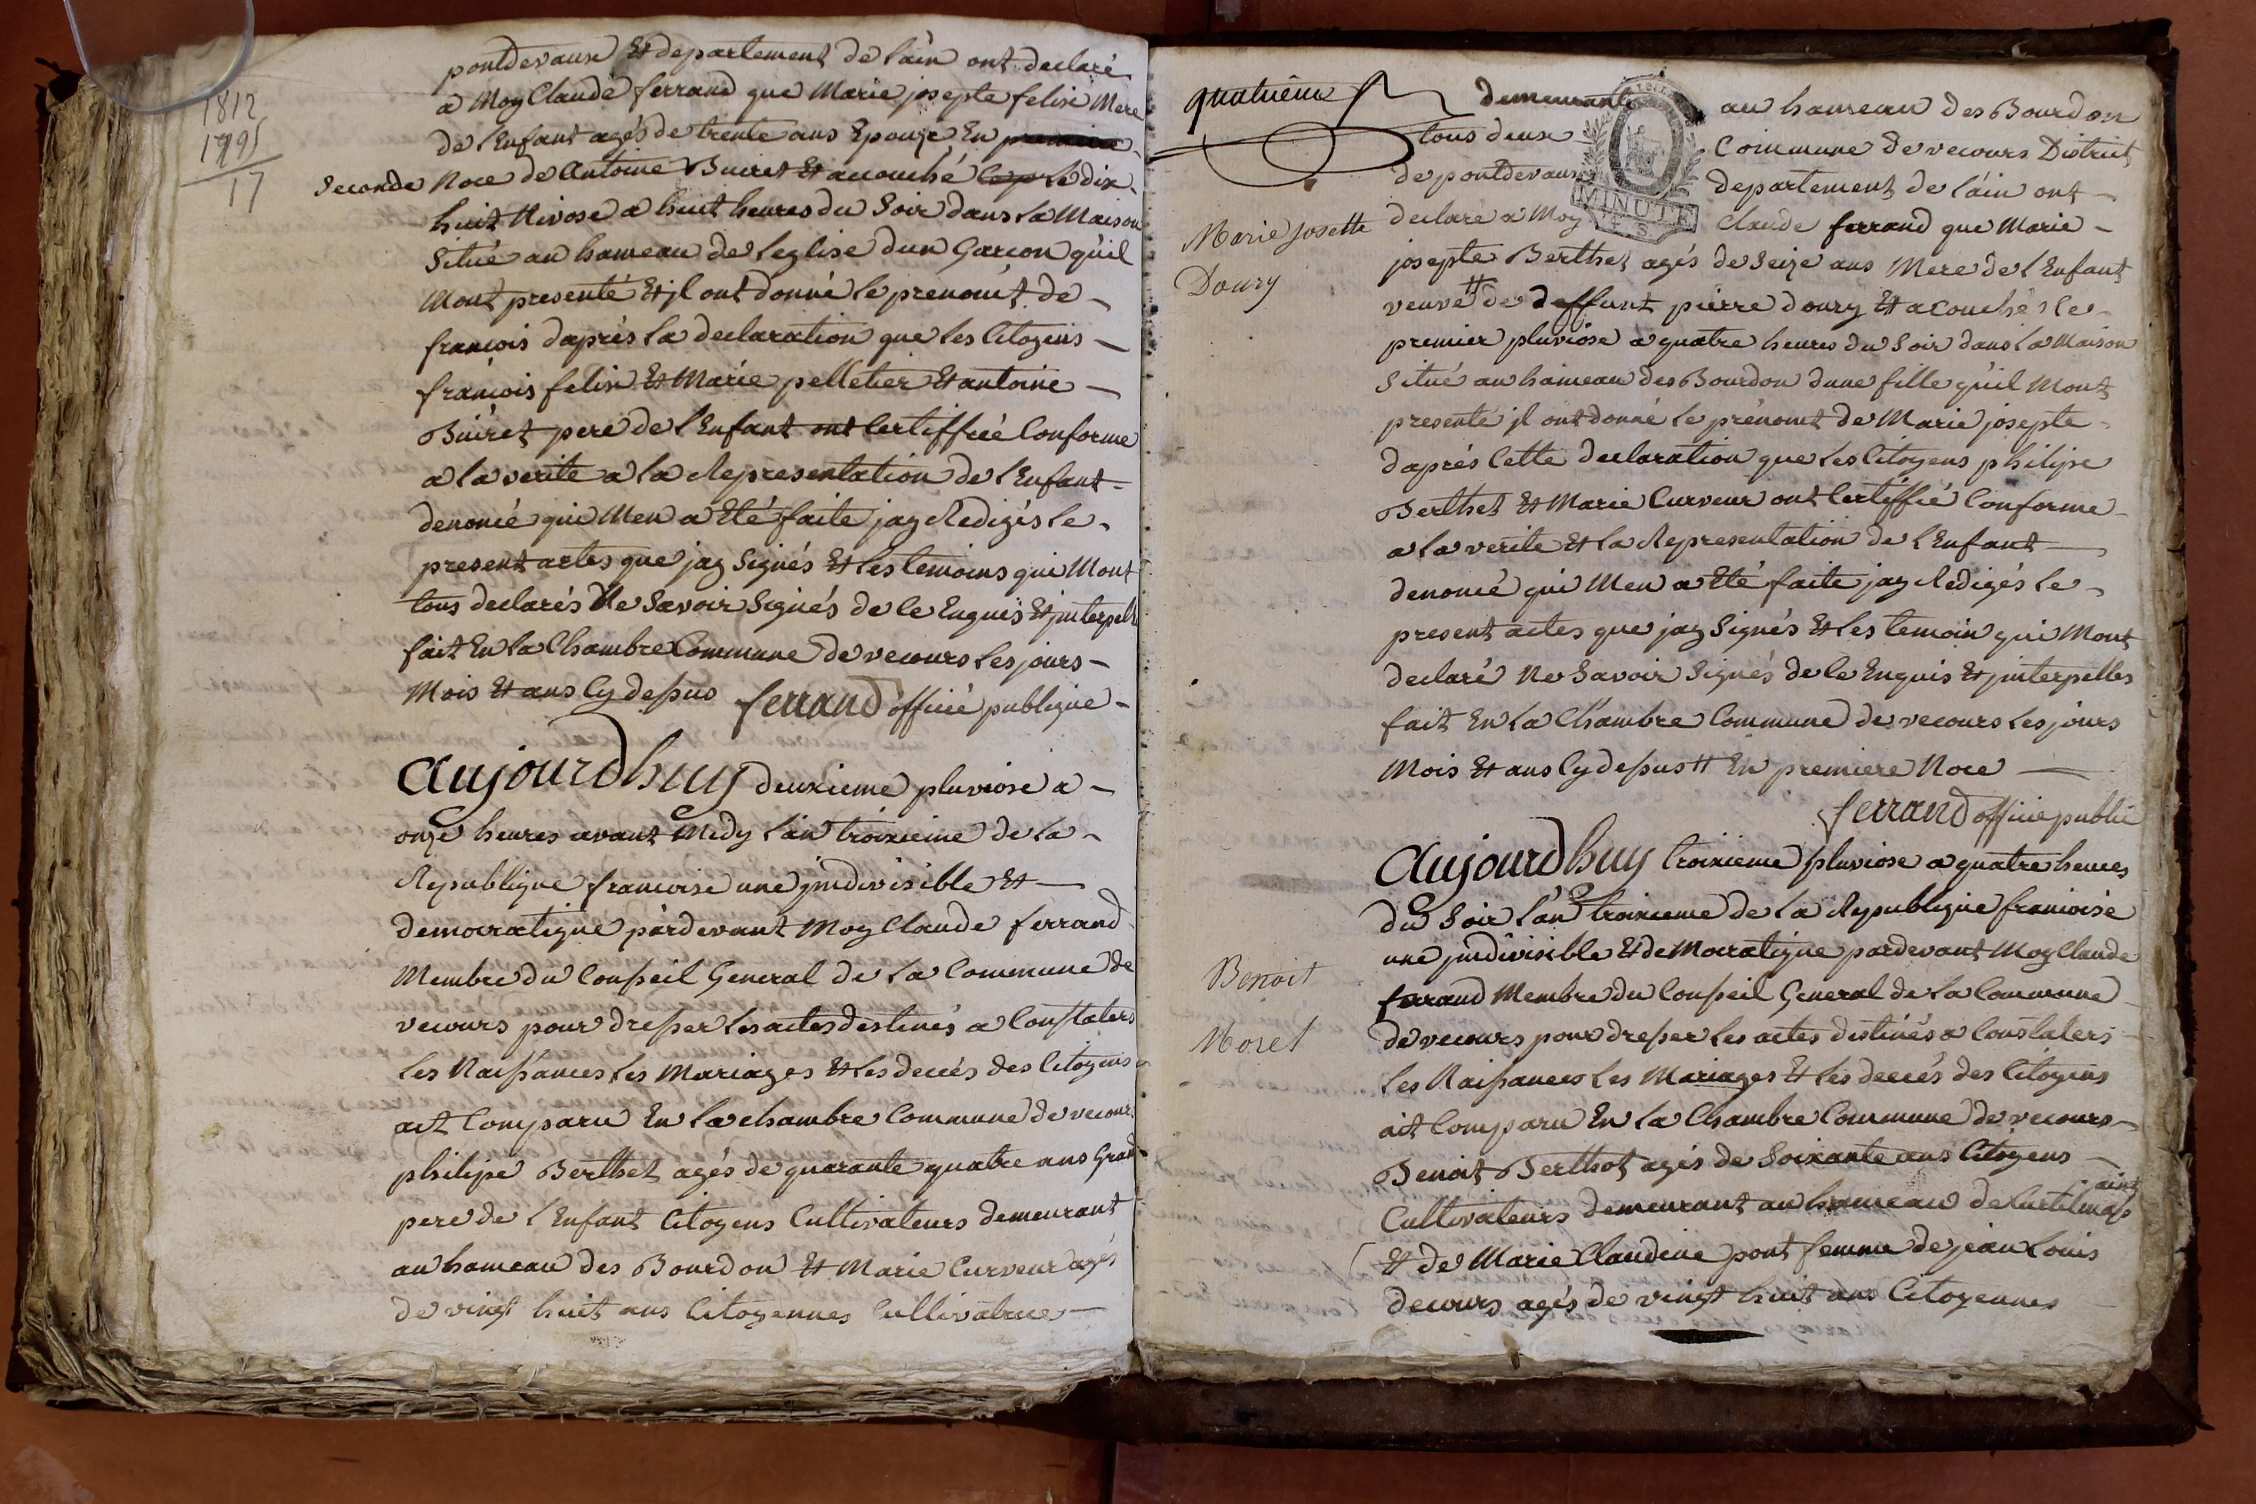 1812
1795
17
pontdevaux Et departement de lain ont declaré
a Moy Claude ferrand que Marie josepte felix Mere
de lEnfant agés de trente ans Epouze En
seconde Noce de antoine Buiret Et acouché le dix
huit Nivose a huit heures du Soir dans la Maison
Situé au hameau de leglise dun Garcon quil
Mont presenté Et jl ont donné le prenomt de
francois daprés la declaration que les Citoyens
francois felix Et Marie pelletier Et antoine
Buiret pere de lEnfant ont Certiffieé Conforme
a la verite a la Representation de lEnfant
denomé qui Men a Eté faite jay Redigés le
present actes que jay Signés Et les temoins qui Mont
tous declarés Ne Savoir Signés de le Enquis Et jnterpell
fait En la Chambre Commune de vecours les jours
Mois Et ans Cy dessus ferrand officié publique
Aujourdhuy deuxieme pluviose a
onze heures avant Medy lan troixieme de la
Republique francoise une jndivisible Et
democratique pardevant Moy Claude ferrand
Membre du Conseil General de la Commune de
vecours pour dresser les actes destinés a Constaters
les Naissances les Mariages Et les decés des Citoyens
ait Comparu En la chambre Commune de vecours
philipe Berthet agés de quarante quatre ans Grand
pere de lEnfant Citoyens Cultivateurs demeurant
au hameau des Bourdon Et Marie Curveur agés
de vingt huit ans Citoyennes Cultivatrice
quatrieme
demeurante au hameau des Bourdon
tous deux Commune de vecours District
de pontdevaux departement de lain ont
MINUTE
Marie josette
Doury
declare a Moy Claude ferrand que Marie
josepte Berthet agés de Seize ans Mere de lEnfant
veuve # de deffunt pierre doury Et acouchés le
premier pluviose a quatre heures du Soir dans la Maison
Situé au hameau des Bourdon dune fille quil Mont
presenté jl ont donné le prénomt de Marie josepte
daprés Cette declaration que les Citoyens philipe
Berthet Et Marie Curveur ont Certéffié Conforme
a la verite Et la Representation de lEnfant
denomé qui Men a Eté faite jay Redigés le
present actes que jay Signés Et les temoin qui Mont
declaré Ne Savoir Signés de le Enquis Et jnterpelles
fait En la Chambre Commune de vecours les jours
Mois Et ans Cy dessus # En premiere Noce
ferrand officié public
Aujourdhuy troixieme pluviose a quatre heures
du Soir lan troixieme de la Republique francoise
une jndivisible Et deMocratique pardevant Moy Claude
Benoit
Moret
ferrand Membre du Conseil General de la Commune
de vecours pour dresser les actes distinés a Constaters
les Naissances les Mariages Et les decés des Citoyens
ait Comparu En la Chambre Commune de vecours
Benoit Berthot agés de Soixante ans Citoyens
Cultivateurs demeurant au hameau de
Et de Marie Claudine pont femme de jean Louis
decours agés de vingt huit ans Citoyennes